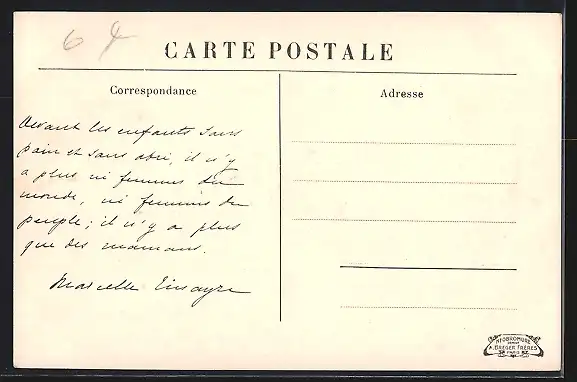 6
CARTE POSTALE
Correspondance
Adresse
Devant les enfants sans
pain et sans abri, il n'y
a plus ni femmes du
monde, ni femmes du
peuple; il n'y a plus
que des mamans.
Marcelle Tinayre
NÉOBROMURE
A. BREGER FRÈRES
PARIS